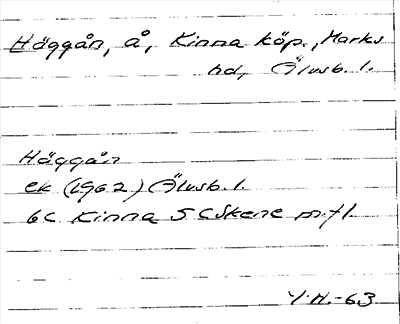 Häggån, å, Kinna köp., Marks
hd, Älvsb. l.
Häggån
ek (1962) Älvsb. l.
6c Kinna 5 c Skene m.fl.
Y.H.-63